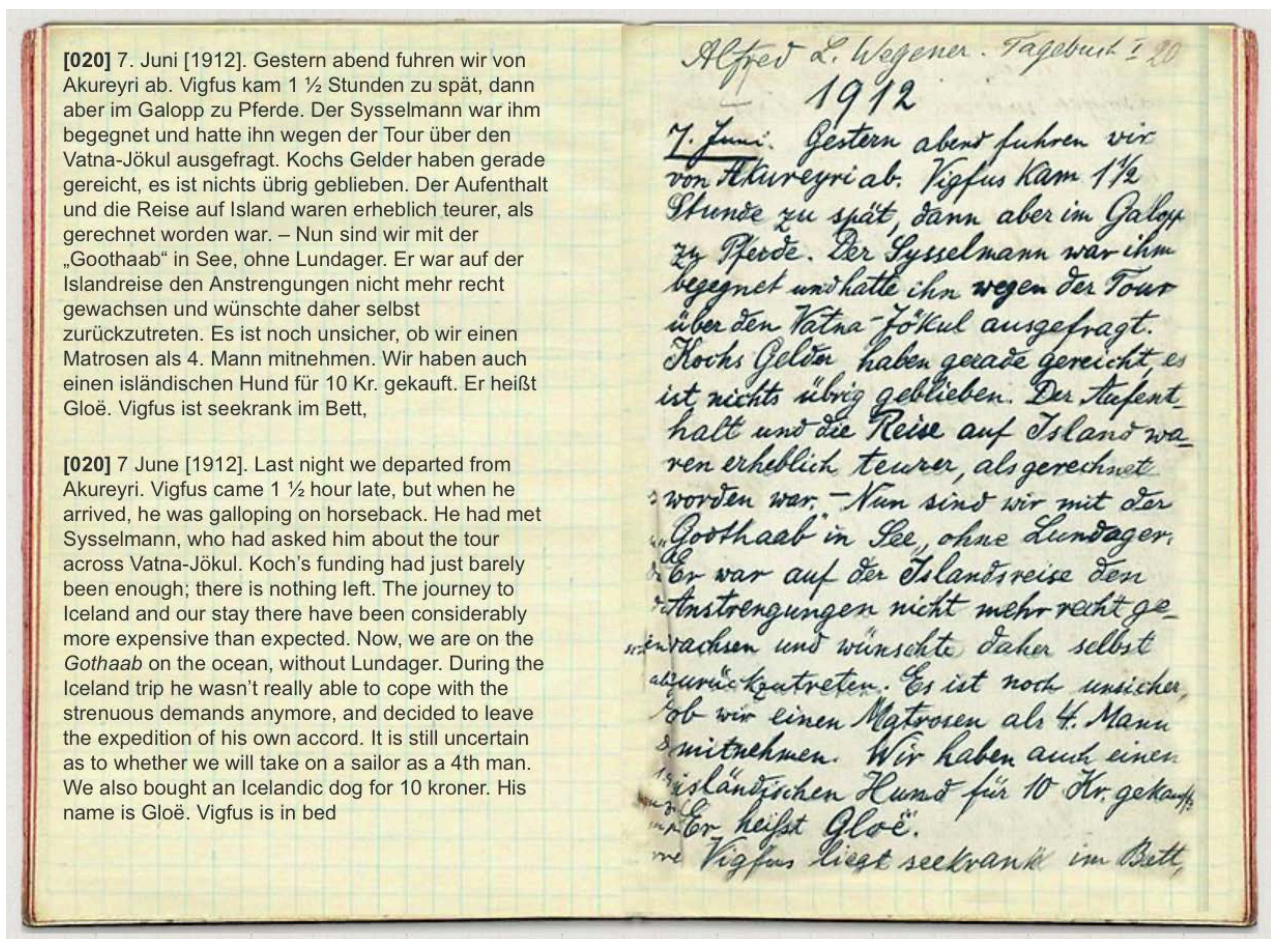 [020] 7. Juni [1912]. Gestern abend fuhren wir von
Akureyri ab. Vigfus kam 1 ½ Stunden zu spät, dann
aber im Galopp zu Pferde. Der Sysselmann war ihm
begegnet und hatte ihn wegen der Tour über den
Vatna-Jökul ausgefragt. Kochs Gelder haben gerade
gereicht, es ist nichts übrig geblieben. Der Aufenthalt
und die Reise auf Island waren erheblich teurer, als
gerechnet worden war. – Nun sind wir mit der
„Goothaab“ in See, ohne Lundager. Er war auf der
Islandreise den Anstrengungen nicht mehr recht
gewachsen und wünschte daher selbst
zurückzutreten. Es ist noch unsicher, ob wir einen
Matrosen als 4. Mann mitnehmen. Wir haben auch
einen isländischen Hund für 10 Kr. gekauft. Er heißt
Gloë. Vigfus ist seekrank im Bett,
[020] 7 June [1912]. Last night we departed from
Akureyri. Vigfus came 1 ½ hour late, but when he
arrived, he was galloping on horseback. He had met
Sysselmann, who had asked him about the tour
across Vatna-Jökul. Koch’s funding had just barely
been enough; there is nothing left. The journey to
Iceland and our stay there have been considerably
more expensive than expected. Now, we are on the
Gothaab on the ocean, without Lundager. During the
Iceland trip he wasn’t really able to cope with the
strenuous demands anymore, and decided to leave
the expedition of his own accord. It is still uncertain
as to whether we will take on a sailor as a 4th man.
We also bought an Icelandic dog for 10 kroner. His
name is Gloë. Vigfus is in bed
Alfred L. Wegener. Tagebuch I 20
1912
7. Juni. Gestern abend fuhren wir
von Akureyri ab. Vigfus kam 1 1/2
Stunde zu spät, dann aber im Galopp
zu Pferde. Der Sysselmann war ihm
begegnet und hatte ihn wegen der Tour
über den Vatna-Jökul ausgefragt.
Kochs Gelder haben gerade gereicht, es
ist nichts übrig geblieben. Der Aufent-
halt und die Reise auf Island wa-
ren erheblich teurer, als gerechnet
worden war. – Nun sind wir mit der
„Goothaab“ in See, ohne Lundager.
Er war auf der Islandsreise den
Anstrengungen nicht mehr recht ge-
wachsen und wünschte daher selbst
zurückzutreten. Es ist noch unsicher,
ob wir einen Matrosen als 4. Mann
mitnehmen. Wir haben auch einen
isländischen Hund für 10 Kr. gekauft.
Er heißt Gloë.
Vigfus liegt seekrank im Bett,